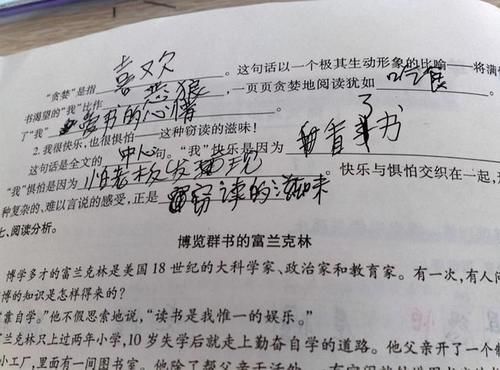 “贪婪”是指 喜欢 。这句话以一个极其生动形象的比喻——将满
书渴望的“我”比作 恶狼 ，一页页贪婪地阅读犹如 吃食
了“我” 爱书的心情
2. 我很快乐，也很惧怕——这种窃读的滋味！
这句话是全文的 中心 句。“我”快乐是因为 看了书
“我”惧怕是因为 怕老板发现 。快乐与惧怕交织在一起，形
种复杂的、难以言说的感受，正是 窃读的滋味
七、阅读分析。
博览群书的富兰克林
博学多才的富兰克林是美国 18 世纪的大科学家、政治家和教育家。有一次，有人问
博的知识是怎样得来的？
“靠自学。”他不假思索地说，“读书是我惟一的娱乐。”
兰克林只上过两年小学，10 岁失学后就走上勤奋自学的道路。他父亲开了一个制
小工厂，里面有一间图书室。他除了帮父亲干活外，